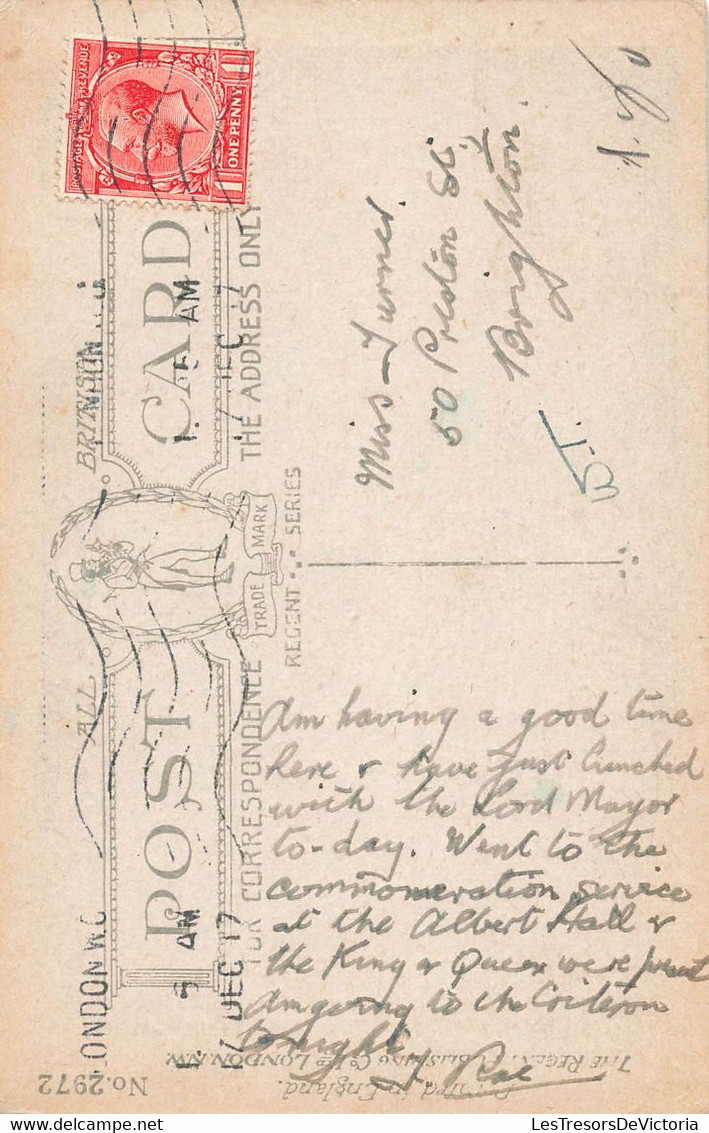 POSTAGE REVENUE
ONE PENNY
ALL BRITISH
POST CARD
TRADE MARK
FOR CORRESPONDENCE
THE ADDRESS ONLY
REGENT SERIES
LONDON W.C
AM
17 DEC 17
AM
Miss Turner
50 Preston St.
Brighton.
Am having a good time
here & have just lunched
with the Lord Mayor
to-day. Went to the
commomeration service
at the Albert Hall &
the King & Queen were present
Am going to the Criterion
tonight
Printed in England.
THE REGENT PUBLISHING Co Ltd LONDON N.W.
No. 2972
LesTresorsDeVictoria.delcampe.net